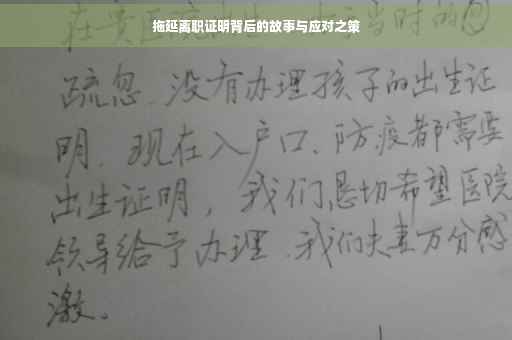 拖延离职证明背后的故事与应对之策
在贵医院出生，当时的
疏忽、没有办理孩子的出生证
明、现在入户口、防疫都需要
出生证明，我们恳切希望医院
领导给予办理、我们夫妻万分感
激。